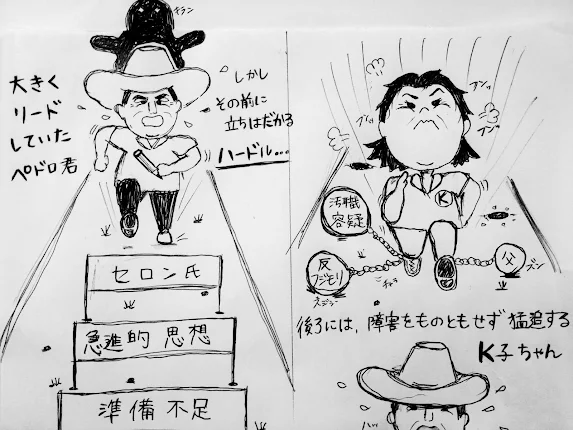 チラン
大きく
リード
していた
ペドロ君
しかし
その前に
立ちはだかる
ハードル…
セロン氏
急進的 思想
準備不足
フンッ
K
汚職
容疑
反
フジモリ
父
ズン
後ろには、障害をものともせず 猛追する
K子ちゃん